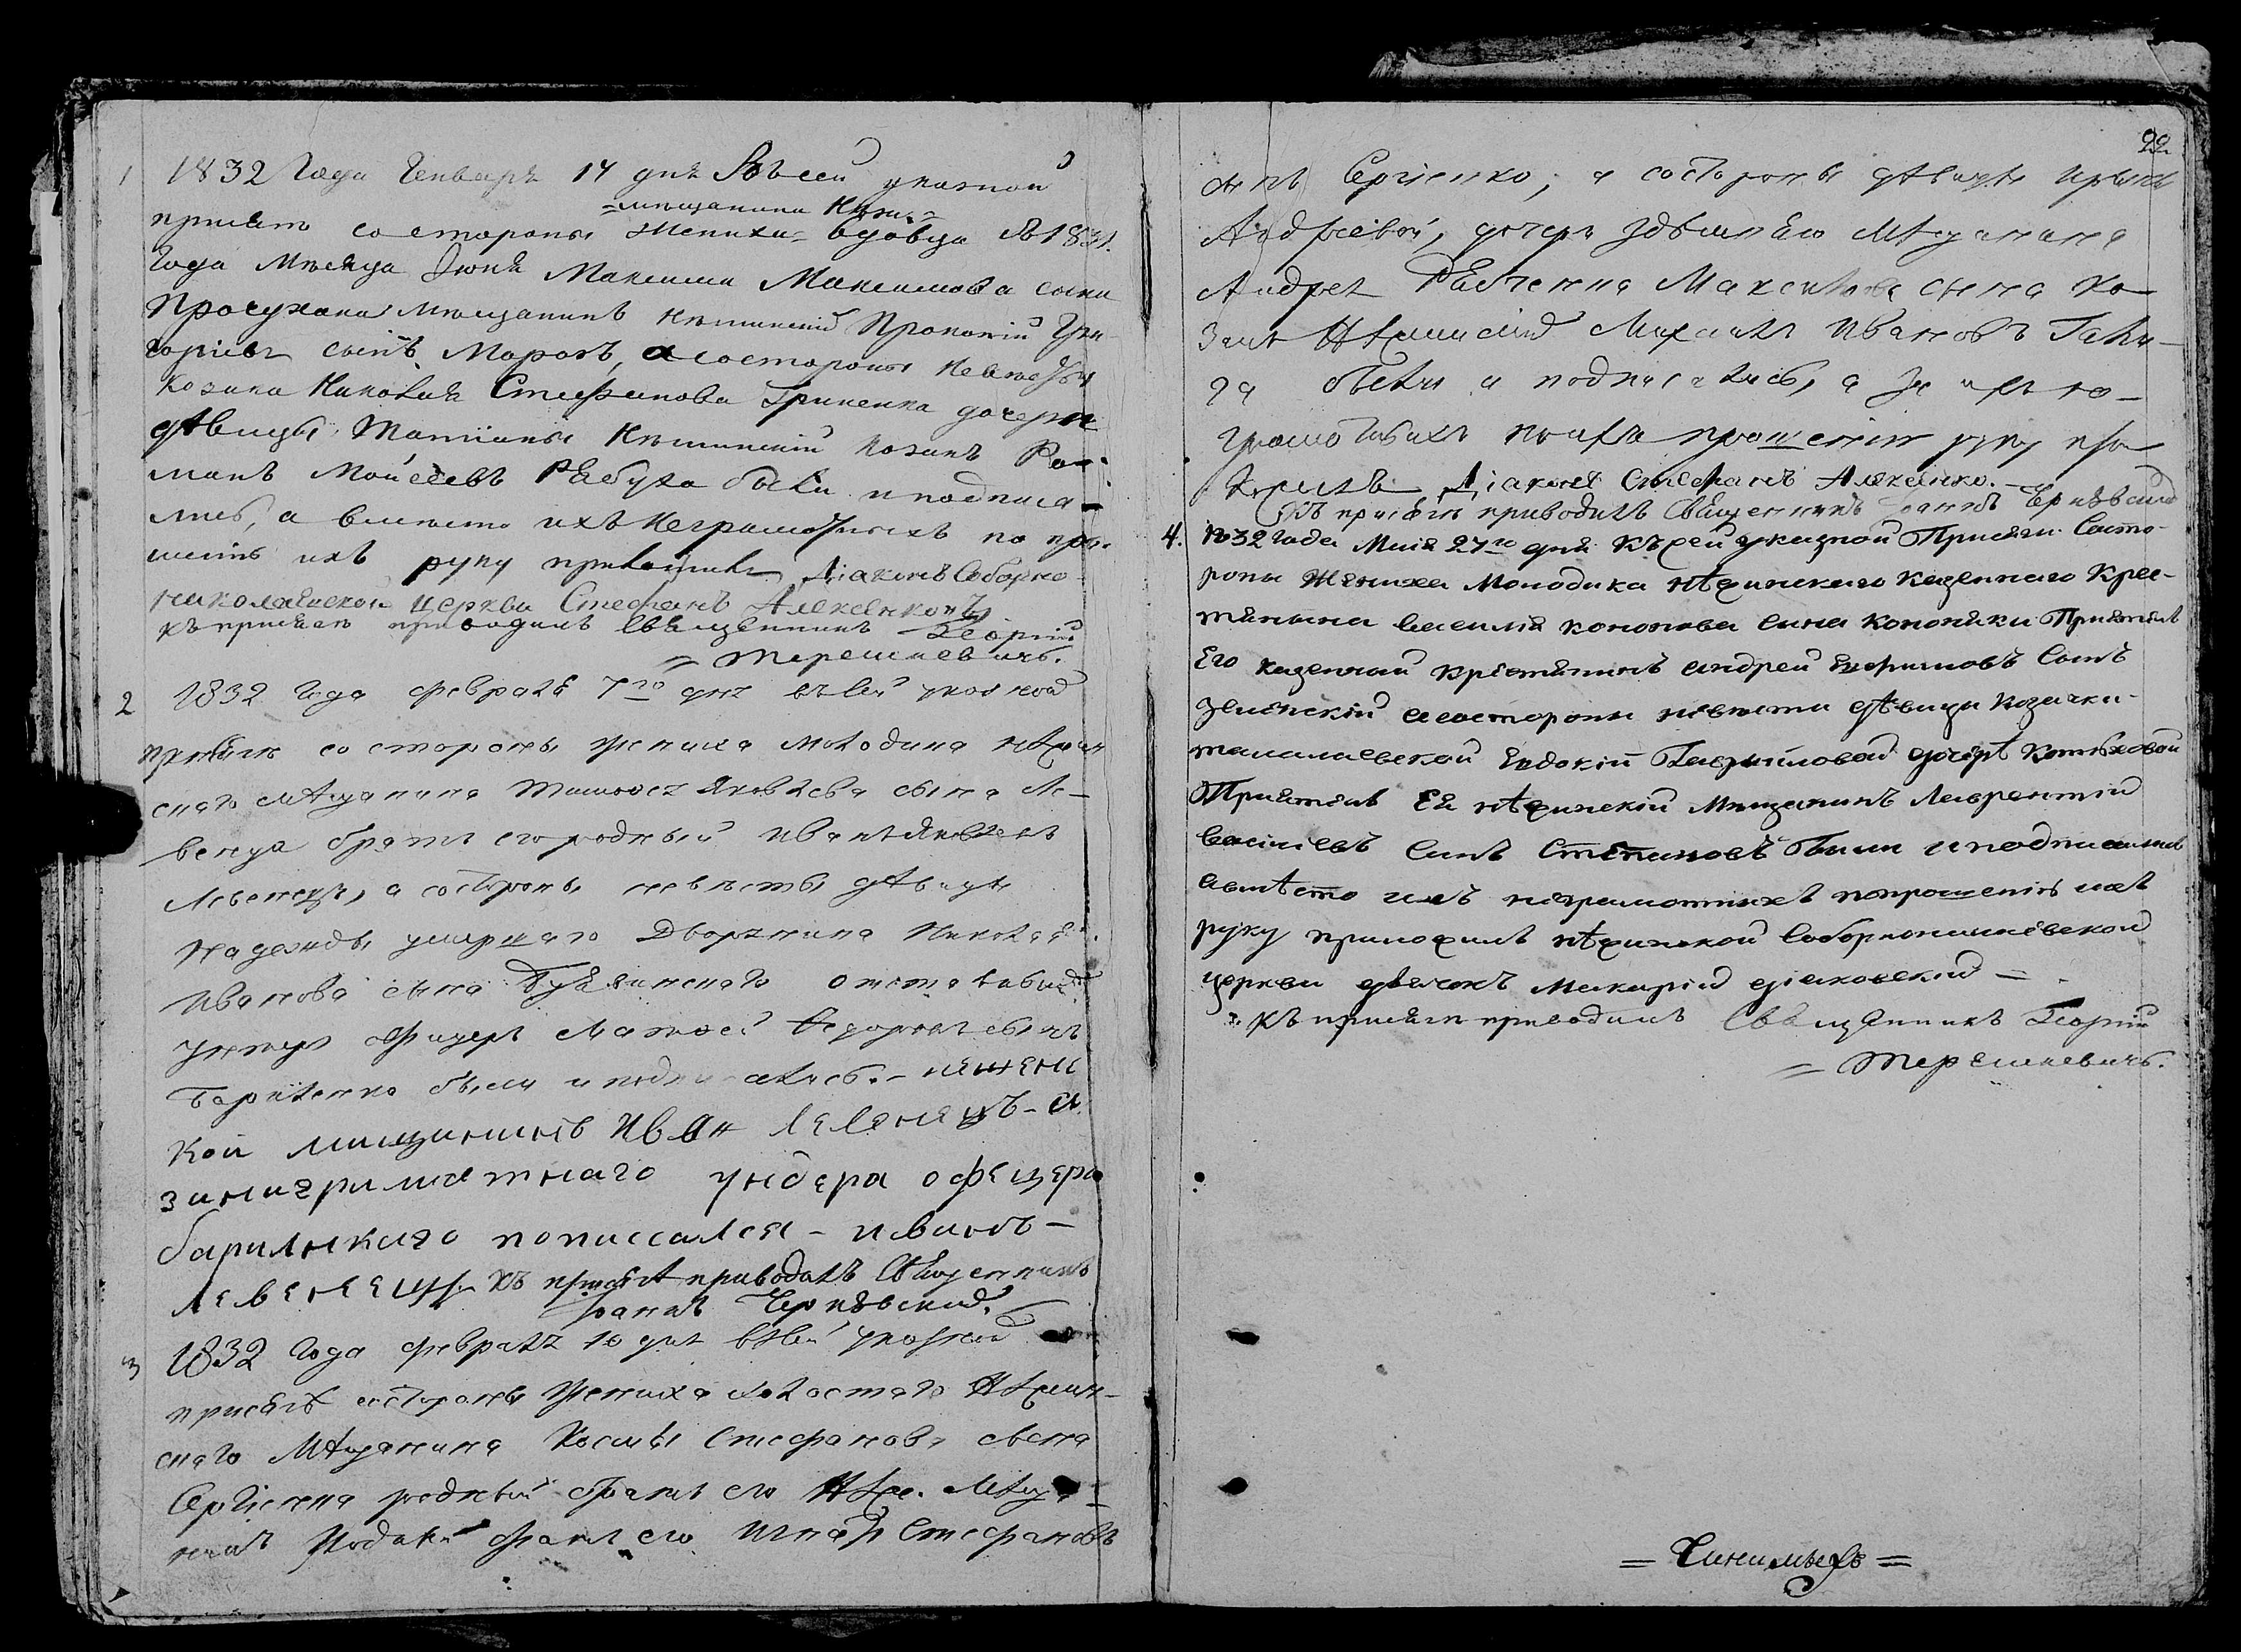 1 1832 года Генваря 14 дня Въ сей указной
=мещанина Нежи.=
присяге со стороны Жениха вдовца 1831.
года месяца Іюня Максима Максимова сына
мещанинъ Нежинскій Прокопій Гри-
горіевъ сынъ Морозъ, а состороны невесты
козака Николая Стефанова Гриненка дочери
дѣвицы Татіаны Нежинскій козакъ Ро-
манъ Мойсеевъ Рябуха были и подписа-
лись, а вместо ихъ неграмотныхъ по про-
шенію ихъ руку приложилъ Діаконъ Соборно
николаевской церкви Стефанъ Алексенковъ
къ присяге приводилъ Священникъ Георгій
= Терешкевичъ.
2 1832 года февраля 7го дня въ сей указной
присягѣ со стороны жениха молодика нѣжин
скаго мѣщанина Тимофея Яковлева сына Ле-
венца братъ его родный Иванъ Яковлевъ
Левенецъ, а состороны невесты дѣвицы
Надежды умершаго Дворянина Николая
Иванова сына отставный
унтеръ офицеръ Матвей Федоровъ сынъ
были и подписались.- нежене
кои мищининъ Иван Левенецъ-а
занигриматнаго ундера офецера
пописсался - Иванъ -
Левенецъ къ присягѣ приводилъ Священникъ
Іоаннъ Чернѣвскій.
3 1832 года февраля 10 дня въ сей указной
присягѣ состороны Жениха холостаго Нѣжин-
скаго Мѣщанина Космы Стефанова сына
Сергіенка родный братъ его Нѣж. Мѣща-
нинъ братъ его Игнатъ Стефановъ
22
сынъ Сергіенко, а состороны дѣвицы Ирины
Андреевой, дочери здѣшняго Мѣщанина
Андрея Максимова сына Ко-
закъ Нѣжинскій Михаилъ Ивановъ
га были и подписались, а за ихъ не-
грамотныхъ по ихъ прошенію руку при-
ложилъ Діаконъ Стефанъ Алексенко.-
Къ присягѣ приводилъ Священникъ Іоаннъ Чернѣвскій
4. 1832 года Маія 27го дня Къ сей указной Присяги Состо-
роны Жениха Молодика нѣжинскаго казеннаго Крес-
тянына Василія кононова сына Кононики Пріятель
Его казенный крестянинъ Андрей Ефримовъ Сынъ
Зелѣнскій а состороны невести дѣвици козачки-
талалаевской Евдокіи Гаврииловой дочерѣ
Пріятель Ея нѣжинскій Мищанинъ Лаврентій
василіевъ Синъ Степановъ были и подписались
авмѣсто ихъ неграмотнихъ попрошенію ихъ
руку приложилъ нѣжинской Соборнониколаевской
церкви дьячокъ Макарій діаковскій =
Къ присяги приводилъ Священникъ Георгій
= Терешкевичъ.